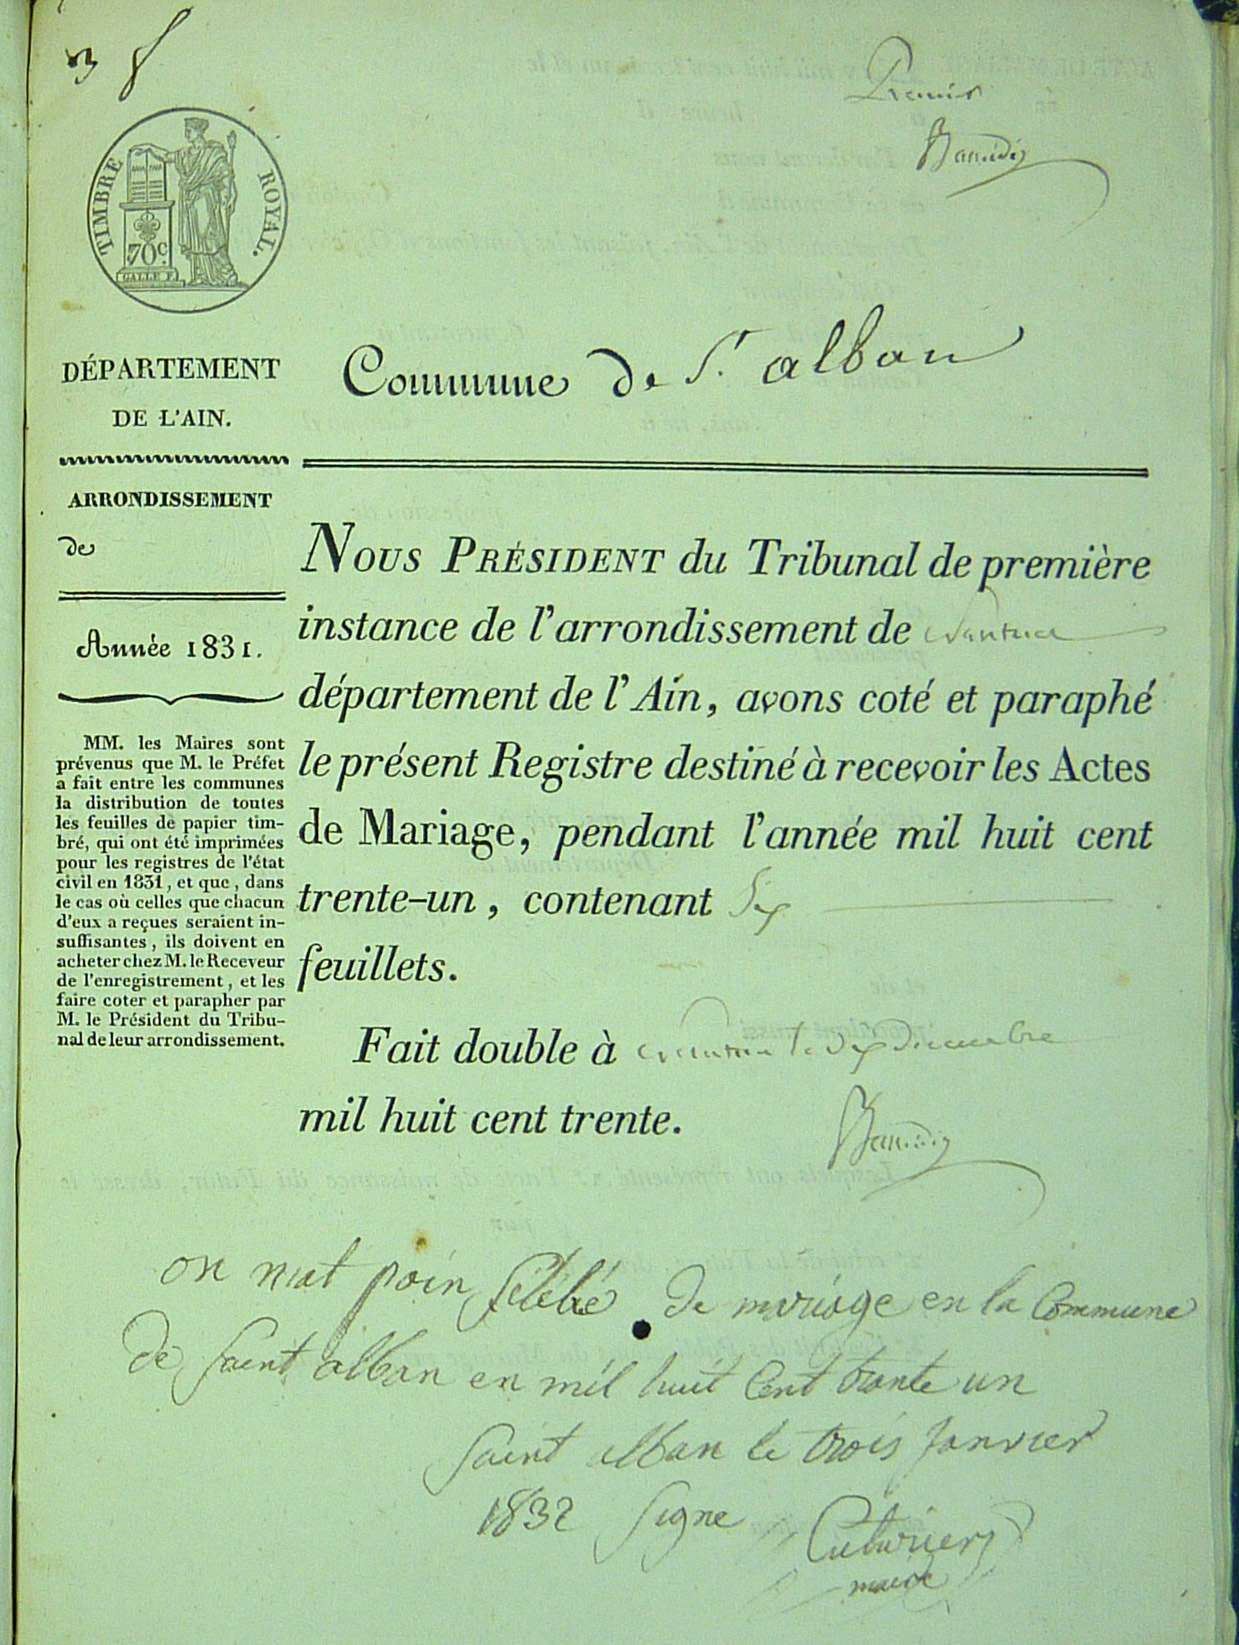 3
Premier
TIMBRE ROYAL.
70c.
GALLE F.
DÉPARTEMENT
DE L'AIN.
Commune de St. alban
ARRONDISSEMENT
de
Année 1831.
MM. les Maires sont
prévenus que M. le Préfet
a fait entre les communes
la distribution de toutes
les feuilles de papier tim-
bré, qui ont été imprimées
pour les registres de l'état
civil en 1831, et que, dans
le cas où celles que chacun
d'eux a reçues seraient in-
suffisantes, ils doivent en
acheter chez M. le Receveur
de l'enregistrement, et les
faire coter et parapher par
M. le Président du Tribu-
nal de leur arrondissement.
NOUS PRÉSIDENT du Tribunal de première
instance de l'arrondissement de Nantua
département de l'Ain, avons coté et paraphé
le présent Registre destiné à recevoir les Actes
de Mariage, pendant l'année mil huit cent
trente-un, contenant Six
feuillets.
Fait double à Nantua le dix Decembre
mil huit cent trente.
on nat poin célébré de mariage en la Commune
de Saint alban en mil huit Cent trante un
Saint alban le trois Janvier
1832 Signe
maire